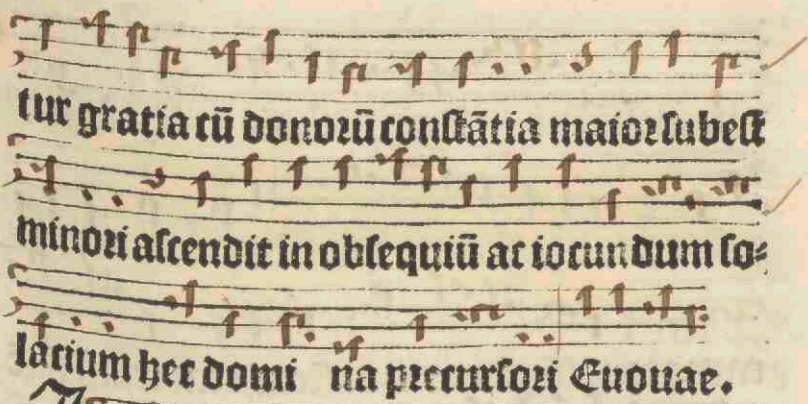 tur gratia cū donoꝛū conſtātia maioꝛ ſubeſt
minoꝛi aſcendit in obſequiū ac iocundum ſo⸗
lacium hec domi na precurſoꝛi Euouae.